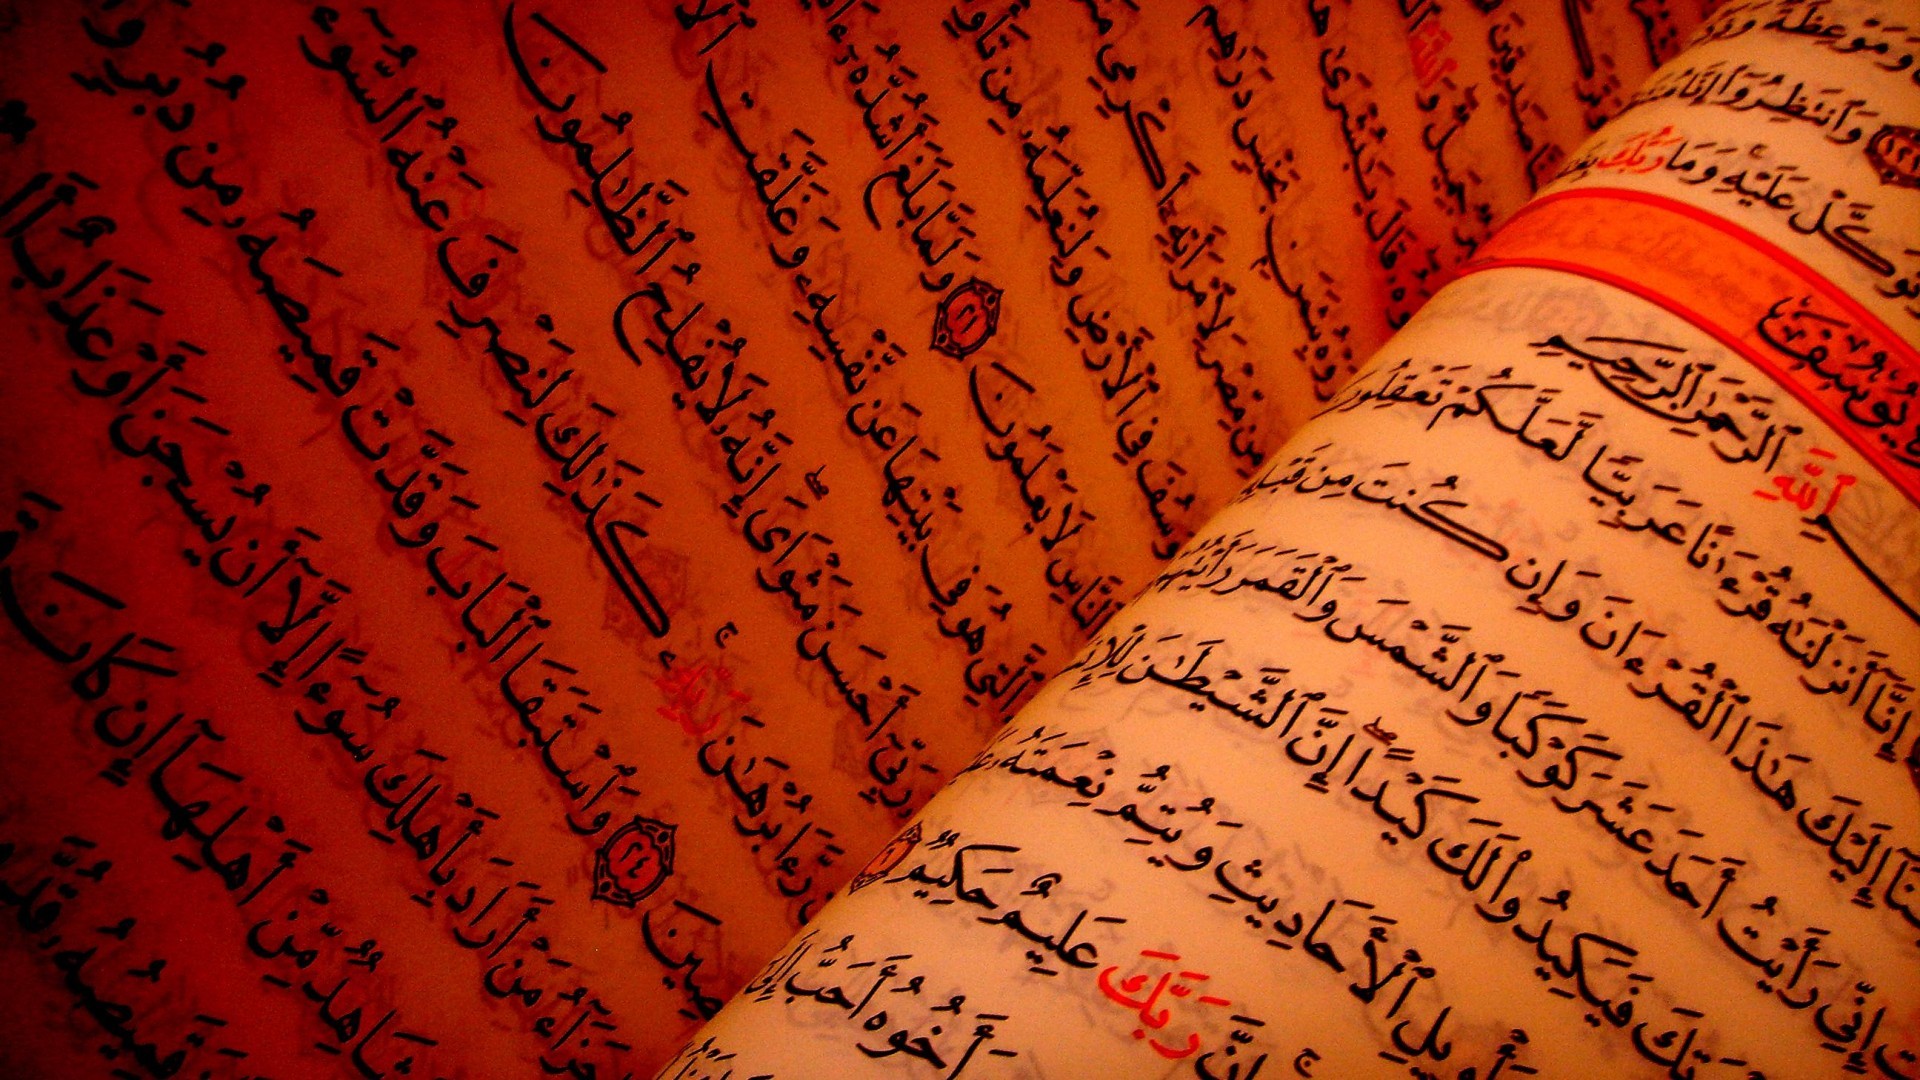 وَمَوْعِظَةٌ
١٢١ وَٱنتَظِرُوٓا۟ إِنَّا
وَتَوَكَّلْ عَلَيْهِ ۚ وَمَا رَبُّكَ
يُوسُفَ
ٱللَّهِ ٱلرَّحْمَـٰنِ ٱلرَّحِيمِ
إِنَّآ أَنزَلْنَـٰهُ قُرْءَٰنًا عَرَبِيًّا لَّعَلَّكُمْ تَعْقِلُونَ
إِلَيْكَ هَـٰذَا ٱلْقُرْءَانَ وَإِن كُنتَ مِن قَبْلِهِۦ
إِنِّى رَأَيْتُ أَحَدَ عَشَرَ كَوْكَبًا وَٱلشَّمْسَ وَٱلْقَمَرَ رَأَيْتُهُمْ
فَيَكِيدُوا۟ لَكَ كَيْدًا ۖ إِنَّ ٱلشَّيْطَـٰنَ
تَأْوِيلِ ٱلْأَحَادِيثِ وَيُتِمُّ نِعْمَتَهُۥ
إِنَّ رَبَّكَ عَلِيمٌ حَكِيمٌ ٦
أَخُوهُ أَحَبُّ إِلَىٰٓ
جَمِيلٌ ۖ وَٱللَّهُ
قَالَ يَـٰبُشْرَىٰ
بِثَمَنٍۭ بَخْسٍ دَرَٰهِمَ
مِن مِّصْرَ لِٱمْرَأَتِهِۦٓ أَكْرِمِى
فِى ٱلْأَرْضِ وَلِنُعَلِّمَهُۥ مِن تَأْوِيلِ
ٱلنَّاسِ لَا يَعْلَمُونَ ٢١ وَلَمَّا بَلَغَ أَشُدَّهُۥٓ
ٱلَّتِى هُوَ فِى بَيْتِهَا عَن نَّفْسِهِۦ وَغَلَّقَتِ
رَبِّىٓ أَحْسَنَ مَثْوَاىَ ۖ إِنَّهُۥ لَا يُفْلِحُ ٱلظَّـٰلِمُونَ
رَّءَا بُرْهَـٰنَ رَبِّهِۦ ۚ كَذَٰلِكَ لِنَصْرِفَ عَنْهُ ٱلسُّوٓءَ
٢٤ وَٱسْتَبَقَا ٱلْبَابَ وَقَدَّتْ قَمِيصَهُۥ مِن دُبُرٍ
جَزَآءُ مَنْ أَرَادَ بِأَهْلِكَ سُوٓءًا إِلَّآ أَن يُسْجَنَ أَوْ عَذَابٌ
شَاهِدٌ مِّنْ أَهْلِهَآ إِن كَانَ
قَمِيصُهُۥ